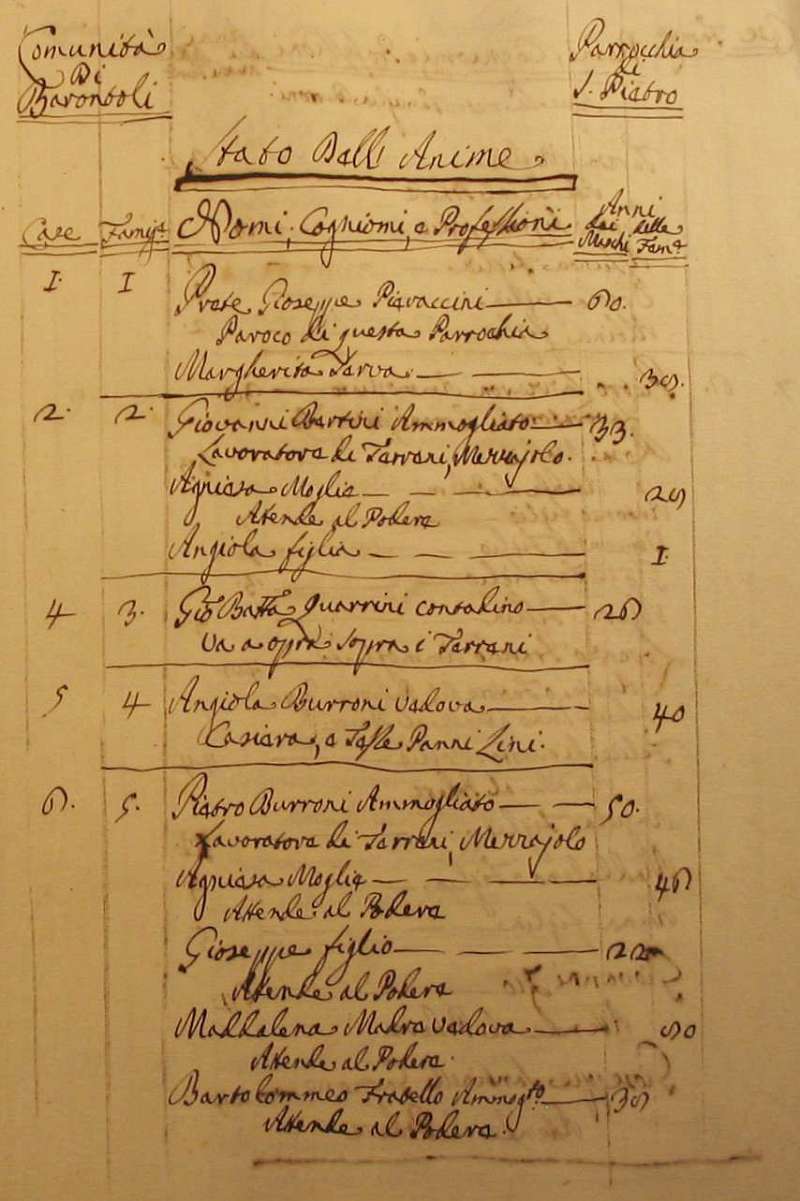 Comunità
Di
Barontoli
Parrocchia
di
S. Pietro
Stato Dell' Anime
Case Famigᵉ Nomi, Cognomi, e Professioni Anni
dei Maschi delle Famᵉ
1. 1 Prete Gioseppe Pieraccini 60.
Paroco di questa Parrochia
Margherita Serva 39.
2. 2. Giovanni Bartini Ammogliato 33.
Lavoratore di Terreni, Mezzajolo.
Agniesa Moglie 29
Atende al Podere
Angiola figlia 1.
4 3. Gio Batta Guarrini contadino 26
Va a opra sopra i Terreni
5 4 Angiola Burroni Vedova 40
Casiera, e Tesse Panni Lini.
6. 5. Pietro Burroni Ammogliato 50.
Lavoratore di Terreni, Mezzajolo
Agniesa Moglie 46
Atende al Podere
Gioseppe figlio 22
Atende al Podere
Maddalena Madre Vedova 90
Atende al Podere.
Bartolommeo Fratello Ammogᵗᵒ 39
Atende al Podere.